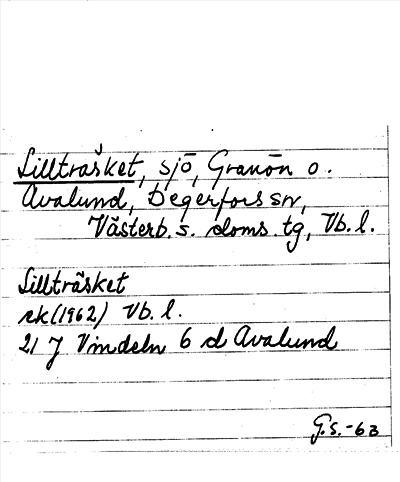 Lillträsket, sjö, Granön o.
Avalund, Degerfors sn,
Västerb. s. doms. tg, Vb. l.
Lillträsket
ek (1962) Vb. l.
21 J Vindeln 6 d Avalund
G.S.-63